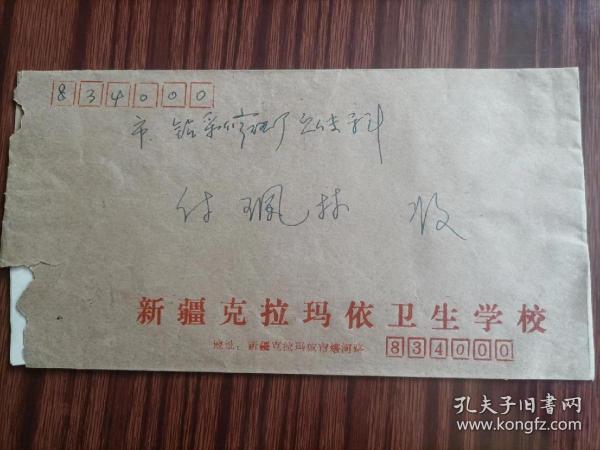 834000
市 钻采
付珮林 收
新疆克拉玛依卫生学校
地址：新疆克拉玛依市塔河路 834000
孔夫子旧书网
www.kongfz.com